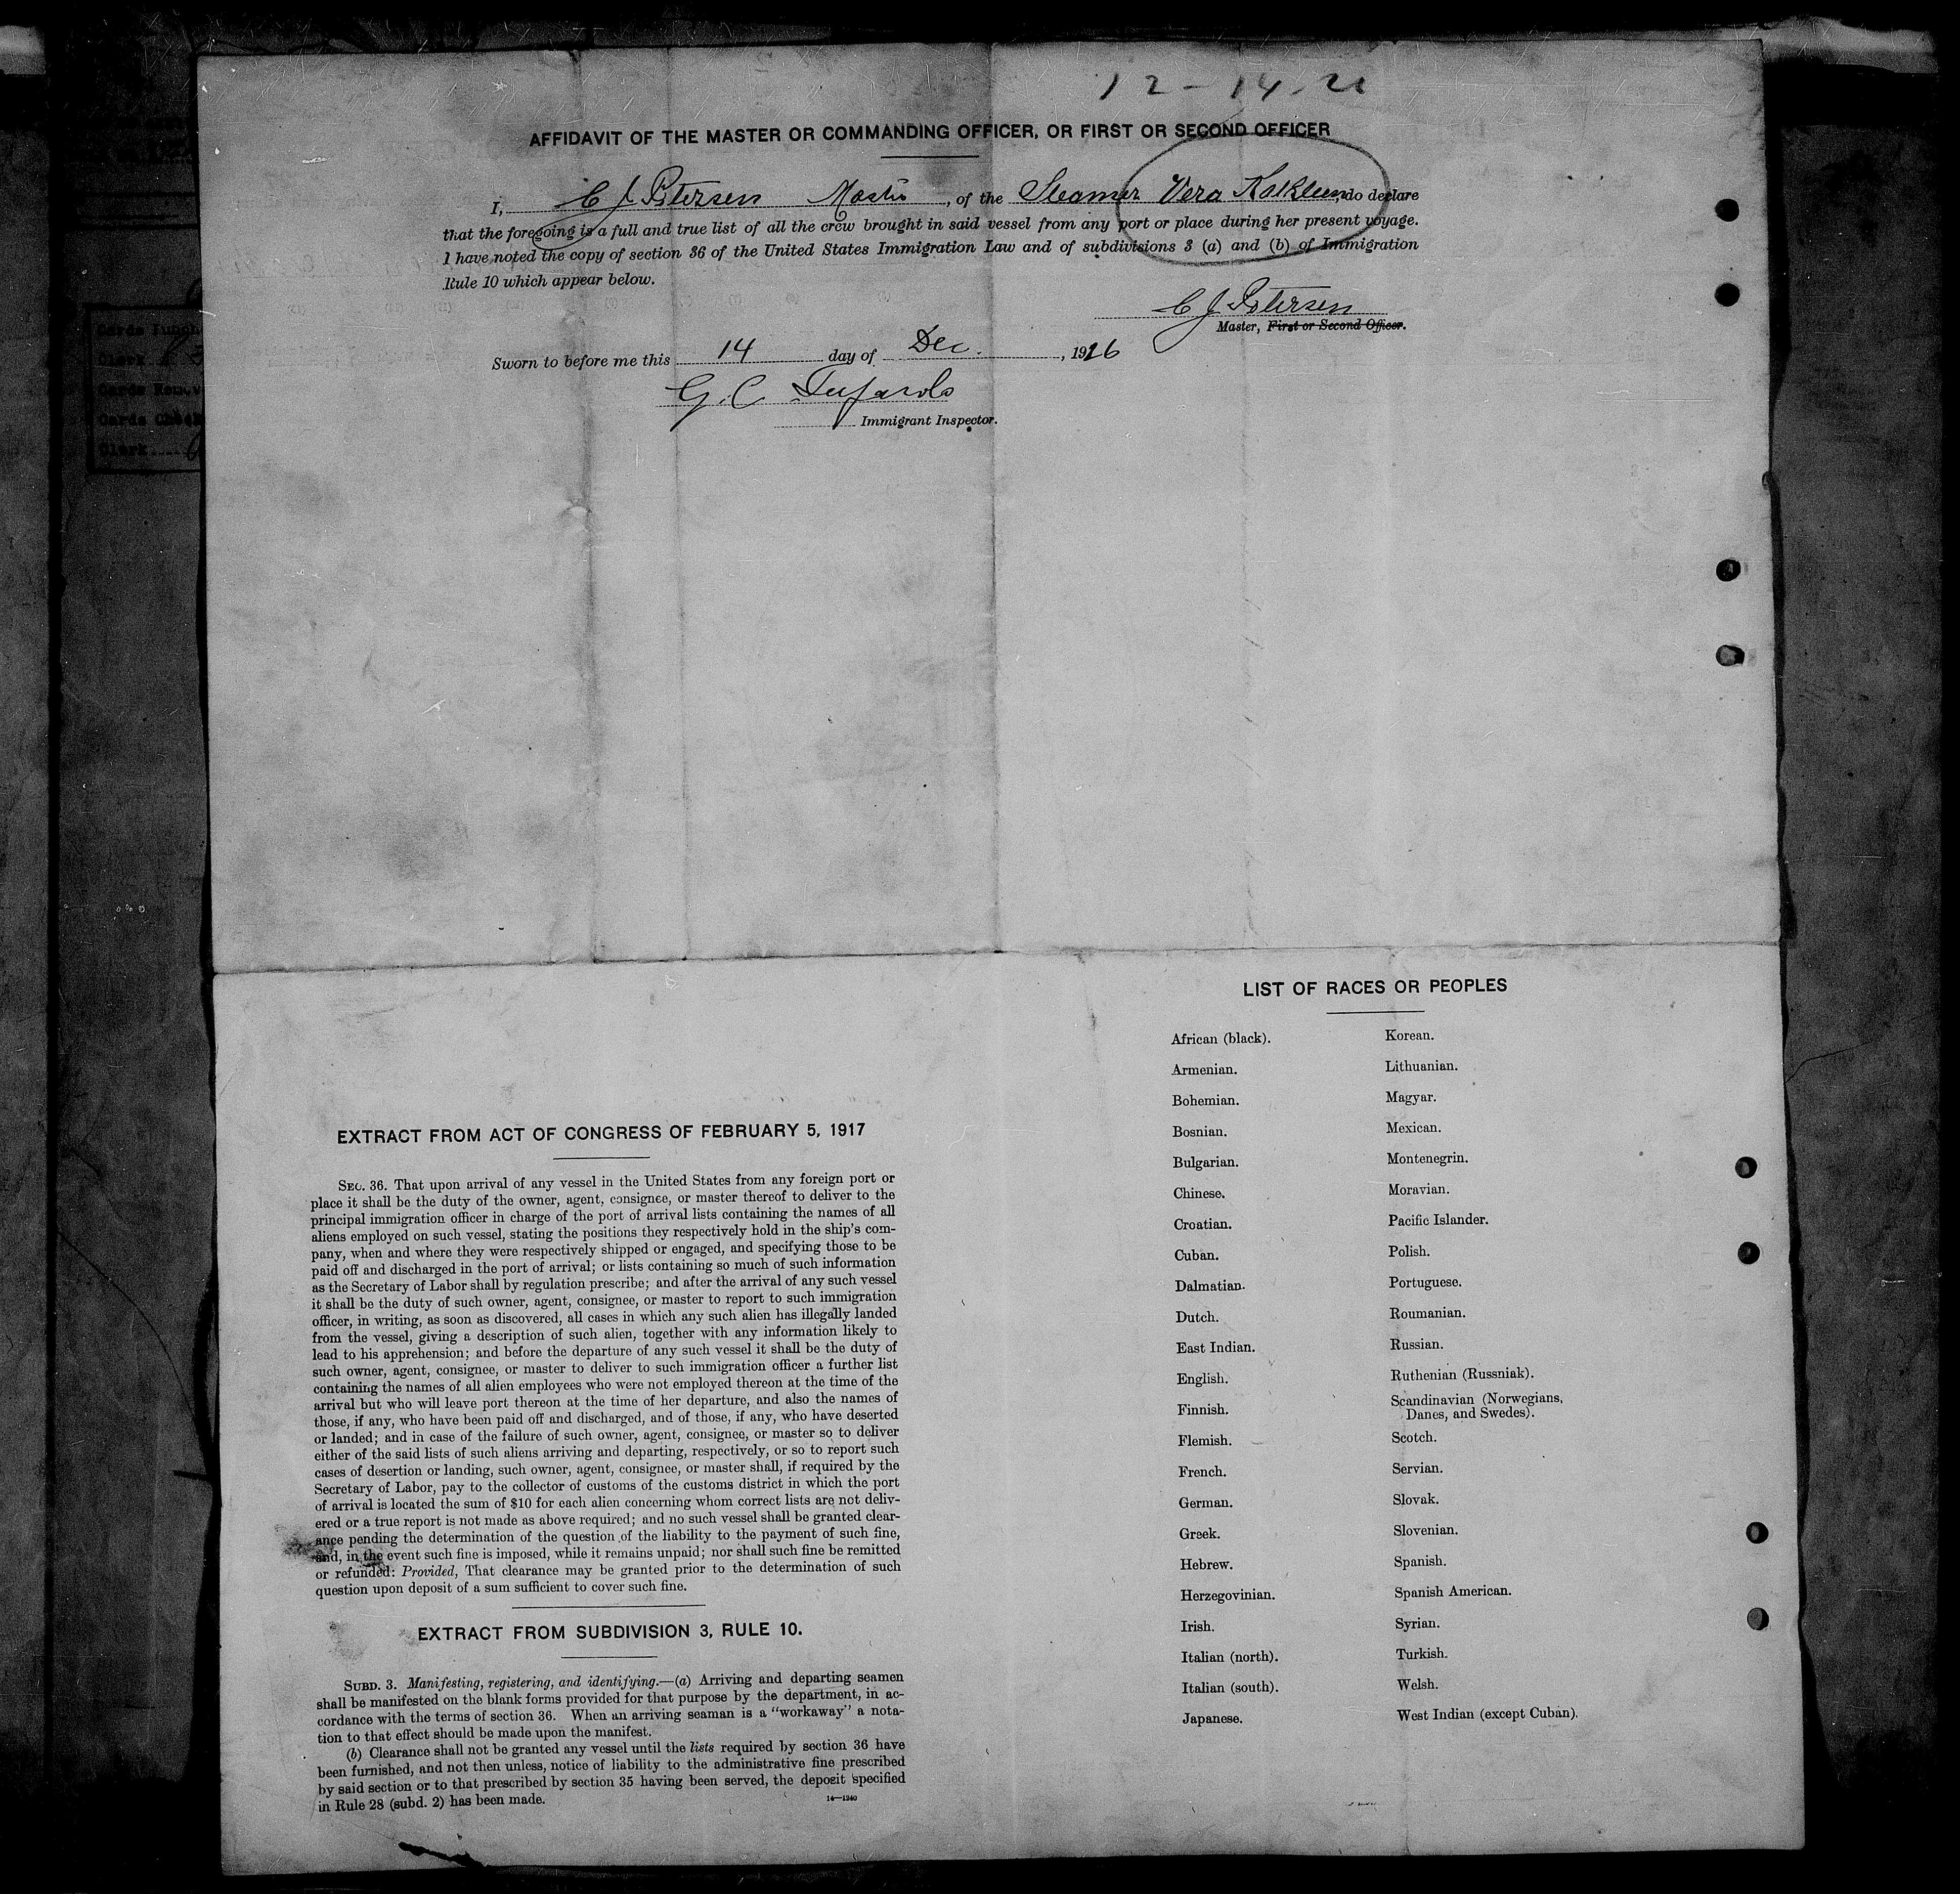 12-14-2
AFFIDAVIT OF THE MASTER OR COMMANDING OFFICER, OR FIRST OR SECOND OFFICER
I, C J Petersen Master, of the Steamer Vera, do declare
that the foregoing is a full and true list of all the crew brought in said vessel from any port or place during her present voyage.
I have noted the copy of section 36 of the United States Immigration Law and of subdivisions 3 (a) and (b) of Immigration
Rule 10 which appear below.
C J Petersen
Master, First or Second Officer.
Sworn to before me this 14 day of Dec., 1926
G. C.
Immigrant Inspector.
EXTRACT FROM ACT OF CONGRESS OF FEBRUARY 5, 1917
SEC. 36. That upon arrival of any vessel in the United States from any foreign port or
place it shall be the duty of the owner, agent, consignee, or master thereof to deliver to the
principal immigration officer in charge of the port of arrival lists containing the names of all
aliens employed on such vessel, stating the positions they respectively hold in the ship's com-
pany, when and where they were respectively shipped or engaged, and specifying those to be
paid off and discharged in the port of arrival; or lists containing so much of such information
as the Secretary of Labor shall by regulation prescribe; and after the arrival of any such vessel
it shall be the duty of such owner, agent, consignee, or master to report to such immigration
officer, in writing, as soon as discovered, all cases in which any such alien has illegally landed
from the vessel, giving a description of such alien, together with any information likely to
lead to his apprehension; and before the departure of any such vessel it shall be the duty of
such owner, agent, consignee, or master to deliver to such immigration officer a further list
containing the names of all alien employees who were not employed thereon at the time of the
arrival but who will leave port thereon at the time of her departure, and also the names of
those, if any, who have been paid off and discharged, and of those, if any, who have deserted
or landed; and in case of the failure of such owner, agent, consignee, or master so to deliver
either of the said lists of such aliens arriving and departing, respectively, or so to report such
cases of desertion or landing, such owner, agent, consignee, or master shall, if required by the
Secretary of Labor, pay to the collector of customs of the customs district in which the port
of arrival is located the sum of $10 for each alien concerning whom correct lists are not deliv-
ered or a true report is not made as above required; and no such vessel shall be granted clear-
ance pending the determination of the question of the liability to the payment of such fine,
and, in the event such fine is imposed, while it remains unpaid; nor shall such fine be remitted
or refunded: Provided, That clearance may be granted prior to the determination of such
question upon deposit of a sum sufficient to cover such fine.
EXTRACT FROM SUBDIVISION 3, RULE 10.
SUBD. 3. Manifesting, registering, and identifying.—(a) Arriving and departing seamen
shall be manifested on the blank forms provided for that purpose by the department, in ac-
cordance with the terms of section 36. When an arriving seaman is a "workaway" a nota-
tion to that effect should be made upon the manifest.
(b) Clearance shall not be granted any vessel until the lists required by section 36 have
been furnished, and not then unless, notice of liability to the administrative fine prescribed
by said section or to that prescribed by section 35 having been served, the deposit specified
in Rule 28 (subd. 2) has been made.
14—1240
LIST OF RACES OR PEOPLES
African (black).
Armenian.
Bohemian.
Bosnian.
Bulgarian.
Chinese.
Croatian.
Cuban.
Dalmatian.
Dutch.
East Indian.
English.
Finnish.
Flemish.
French.
German.
Greek.
Hebrew.
Herzegovinian.
Irish.
Italian (north).
Italian (south).
Japanese.
Korean.
Lithuanian.
Magyar.
Mexican.
Montenegrin.
Moravian.
Pacific Islander.
Polish.
Portuguese.
Roumanian.
Russian.
Ruthenian (Russniak).
Scandinavian (Norwegians,
Danes, and Swedes).
Scotch.
Servian.
Slovak.
Slovenian.
Spanish.
Spanish American.
Syrian.
Turkish.
Welsh.
West Indian (except Cuban).